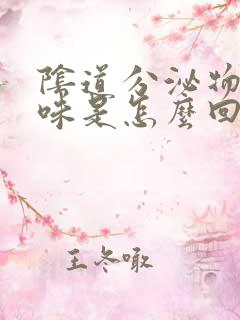 陰道分泌物
味是怎麼回
王冬啾